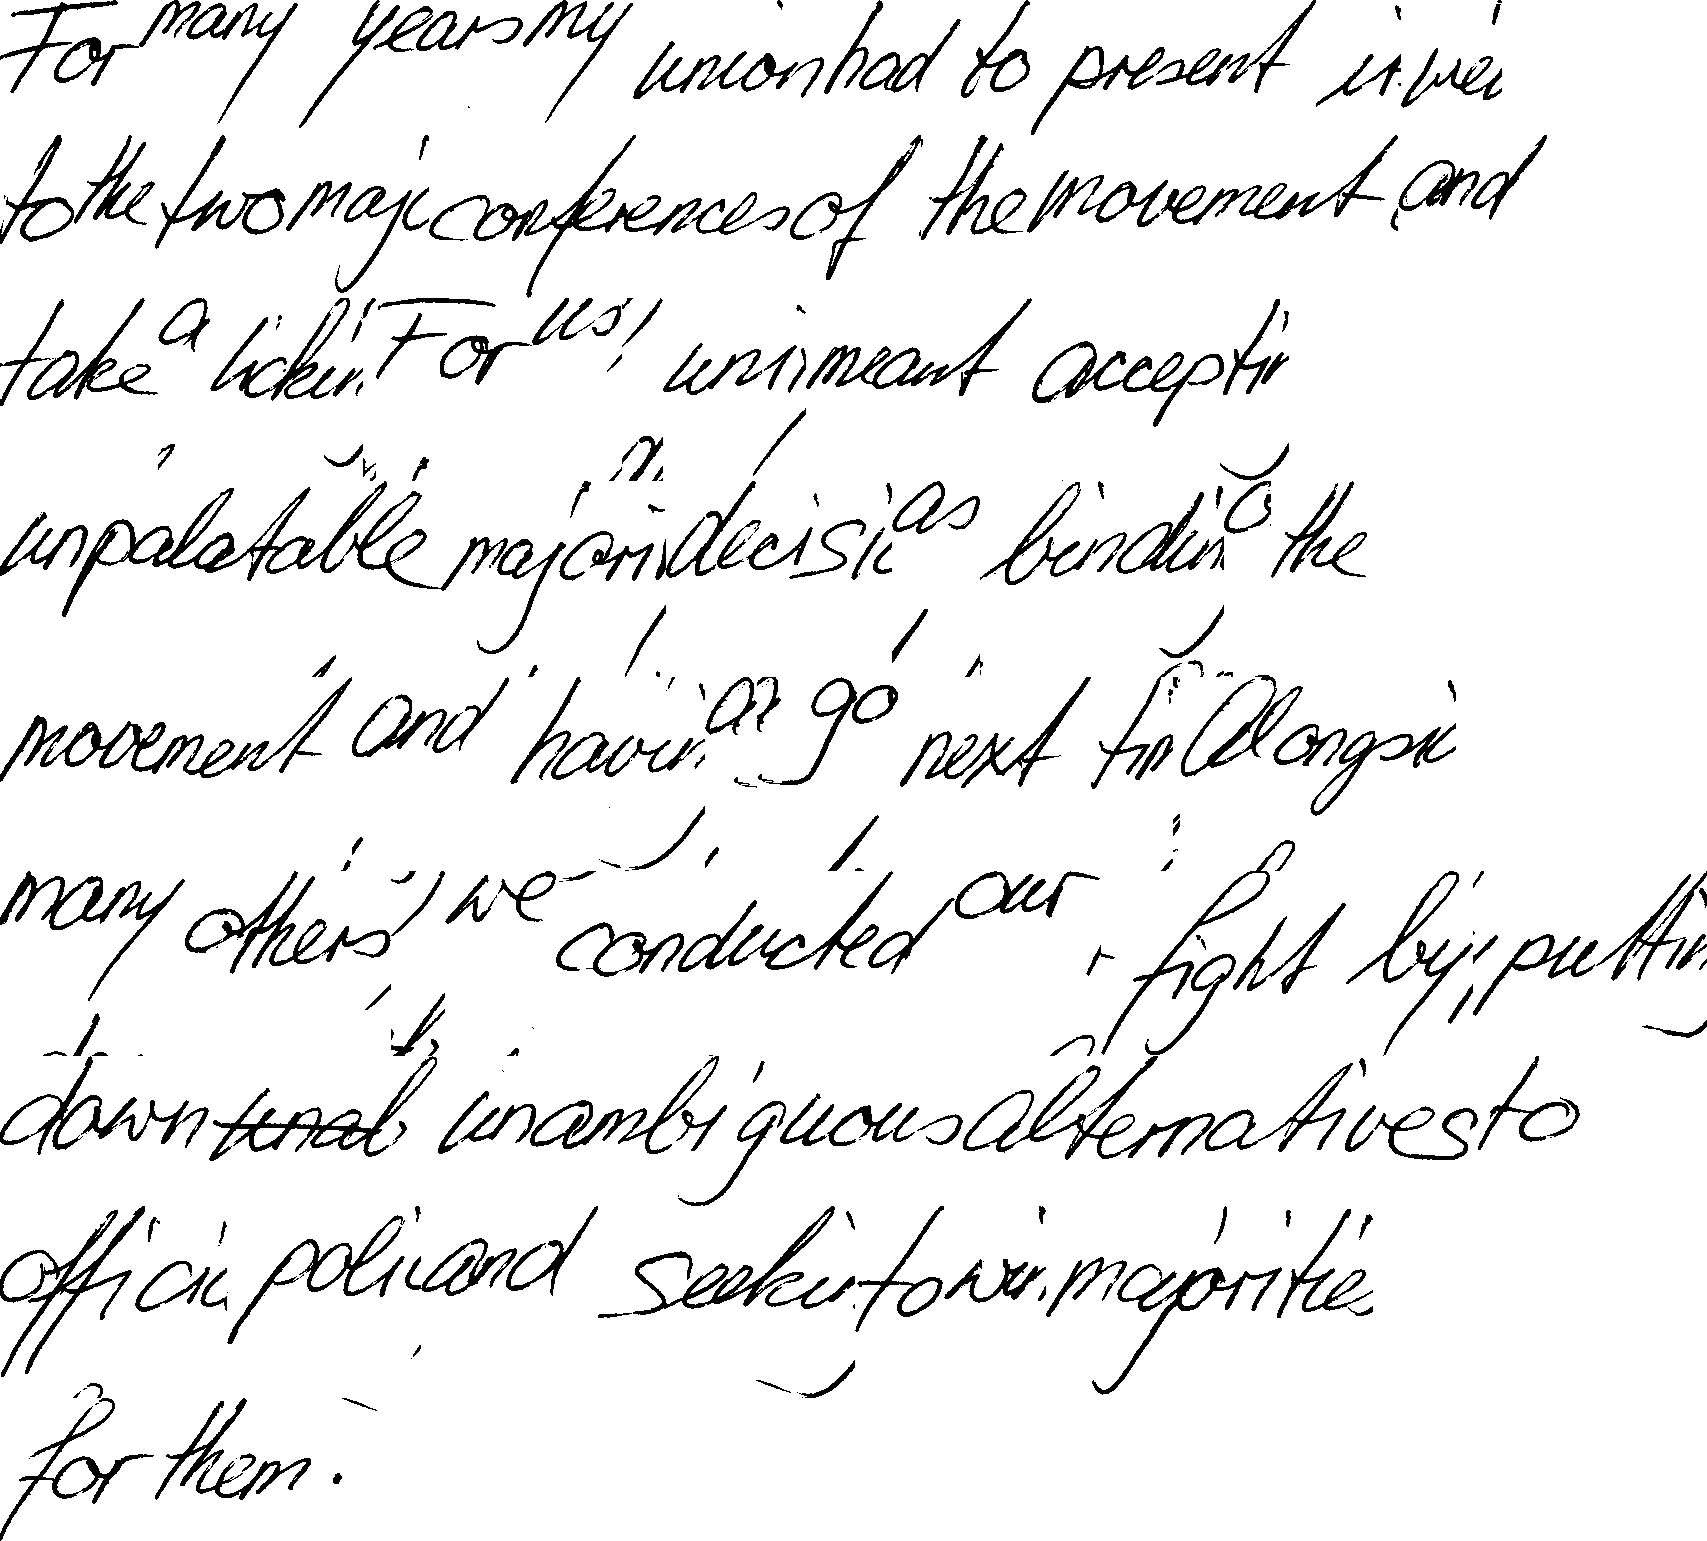 For many years my union had to present its view
to the two major conferences of the movement and
take a licking. For us, unity meant accepting
unpalatable majority decisions as binding on the
movement and having a go next time. Alongside
many others, we conducted our fight by putting
down unambiguous alternatives to
official policy and seeking to win majorities
for them.